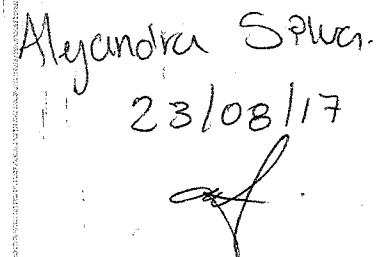 Alejandra Silva.
23/08/17